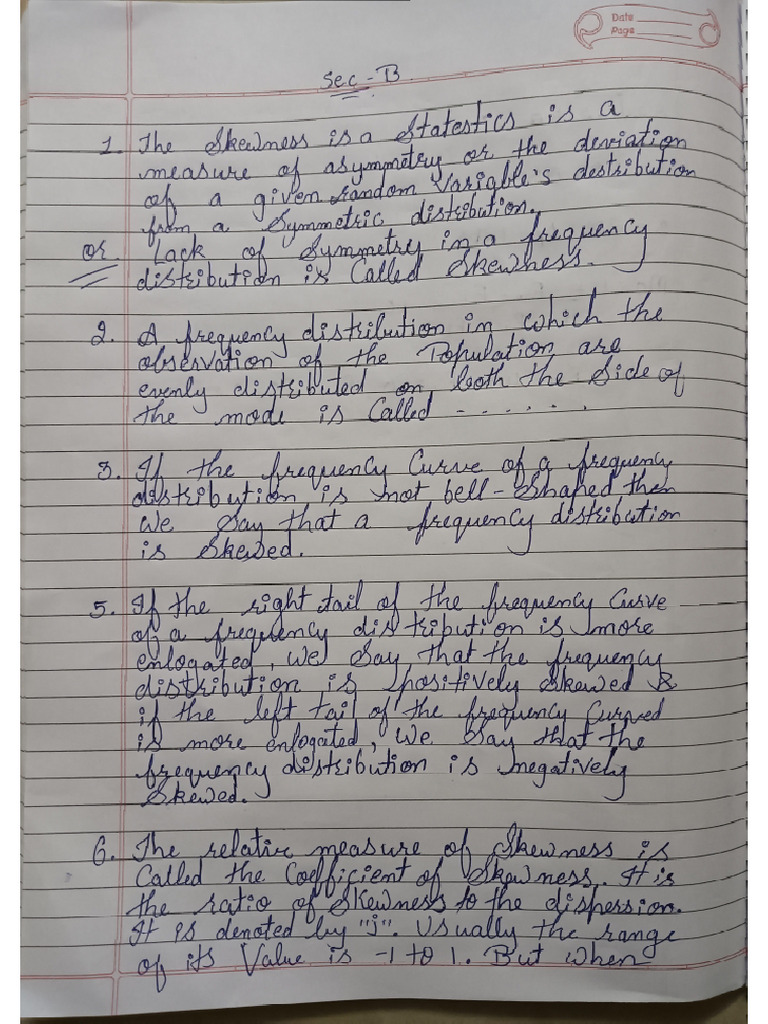 Date
Page
Sec - B
1. The Skewness is a Statestics is a
measure of asymmetry or the deviation
of a given random Variable's destribution
from a Symmetric distribution.
or Lack of Symmetry in a frequency
distribution is Called Skewness.
2. A frequency distribution in which the
observation of the Population are
evenly distributed on both the Side of
the mode is Called - - - - - -
3. If the frequency Curve of a frequency
distribution is not bell-Shaped then
We Say that a frequency distribution
is Skewed.
5. If the right tail of the frequency Curve
of a frequency distribution is more
enlogated, We Say that the frequency
distribution is positively Skewed &
if the left tail of the frequency Curved
is more enlogated, We Say that the
frequency distribution is negatively
Skewed.
6. The relative measure of Skewness is
Called the Coefficient of Skewness. It is
the ratio of Skewness to the dispession.
It is denoted by "j". Usually the range
of its Value is -1 to 1. But when